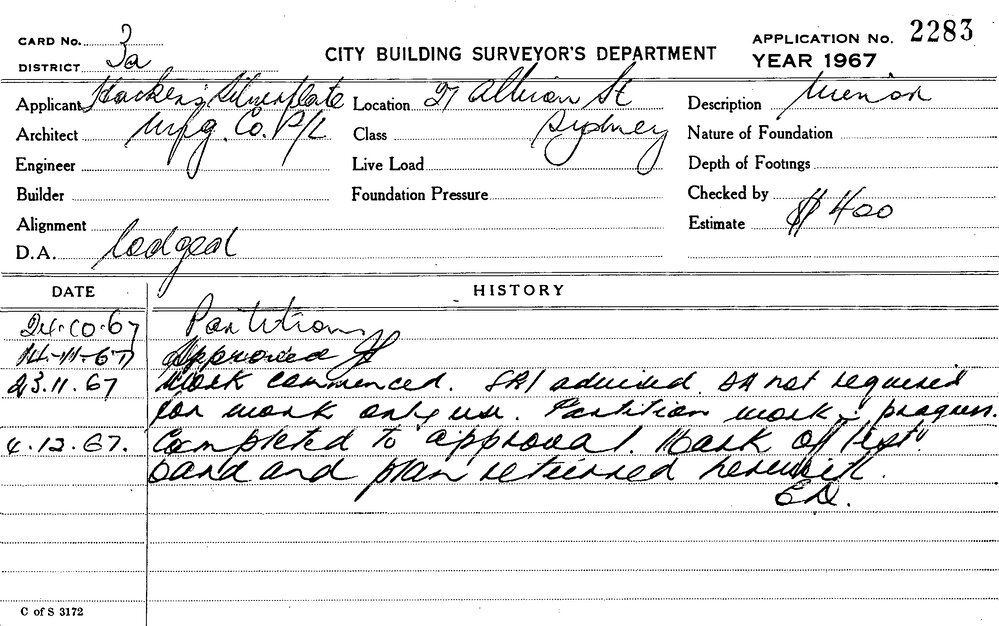 CARD No. 3a
DISTRICT
CITY BUILDING SURVEYOR'S DEPARTMENT
APPLICATION No. 2283
YEAR 1967
Applicant Hacking Silverplate Location 27 Albion St Description Minor
Architect Mfg. Co. P/L Class Sydney Nature of Foundation
Engineer Live Load Depth of Footings
Builder Foundation Pressure Checked by
Alignment Estimate $400
D.A. lodged
DATE HISTORY
24.10.67 Partitions
14.11.67 Approved
23.11.67 Work commenced. advised DA not required
for work only use. Partition work in progress.
4.12.67. Completed to approval. Mark off list
card and plan returned herewith.
C of S 3172